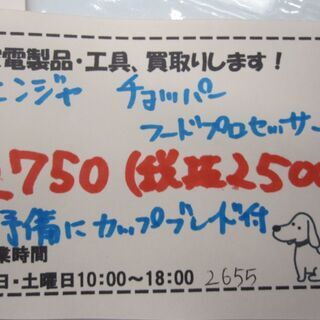 電製品・工具、買取りします！
ンジャ チョッパー
フードプロセッサー
2750（税抜2500
予備にカップブレード付
業時間
日・土曜日10:00～18:00 2655